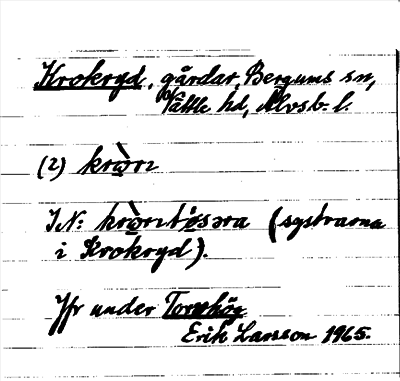 Krokryd, gårdar, Bergums sn,
Vättle hd, Älvsb. l.
(2) krὼꞃı
IN: krὼꞃıtø̀səra (systrarna
i Krokryd).
Jfr under Torshög
Erik Larsson 1965.